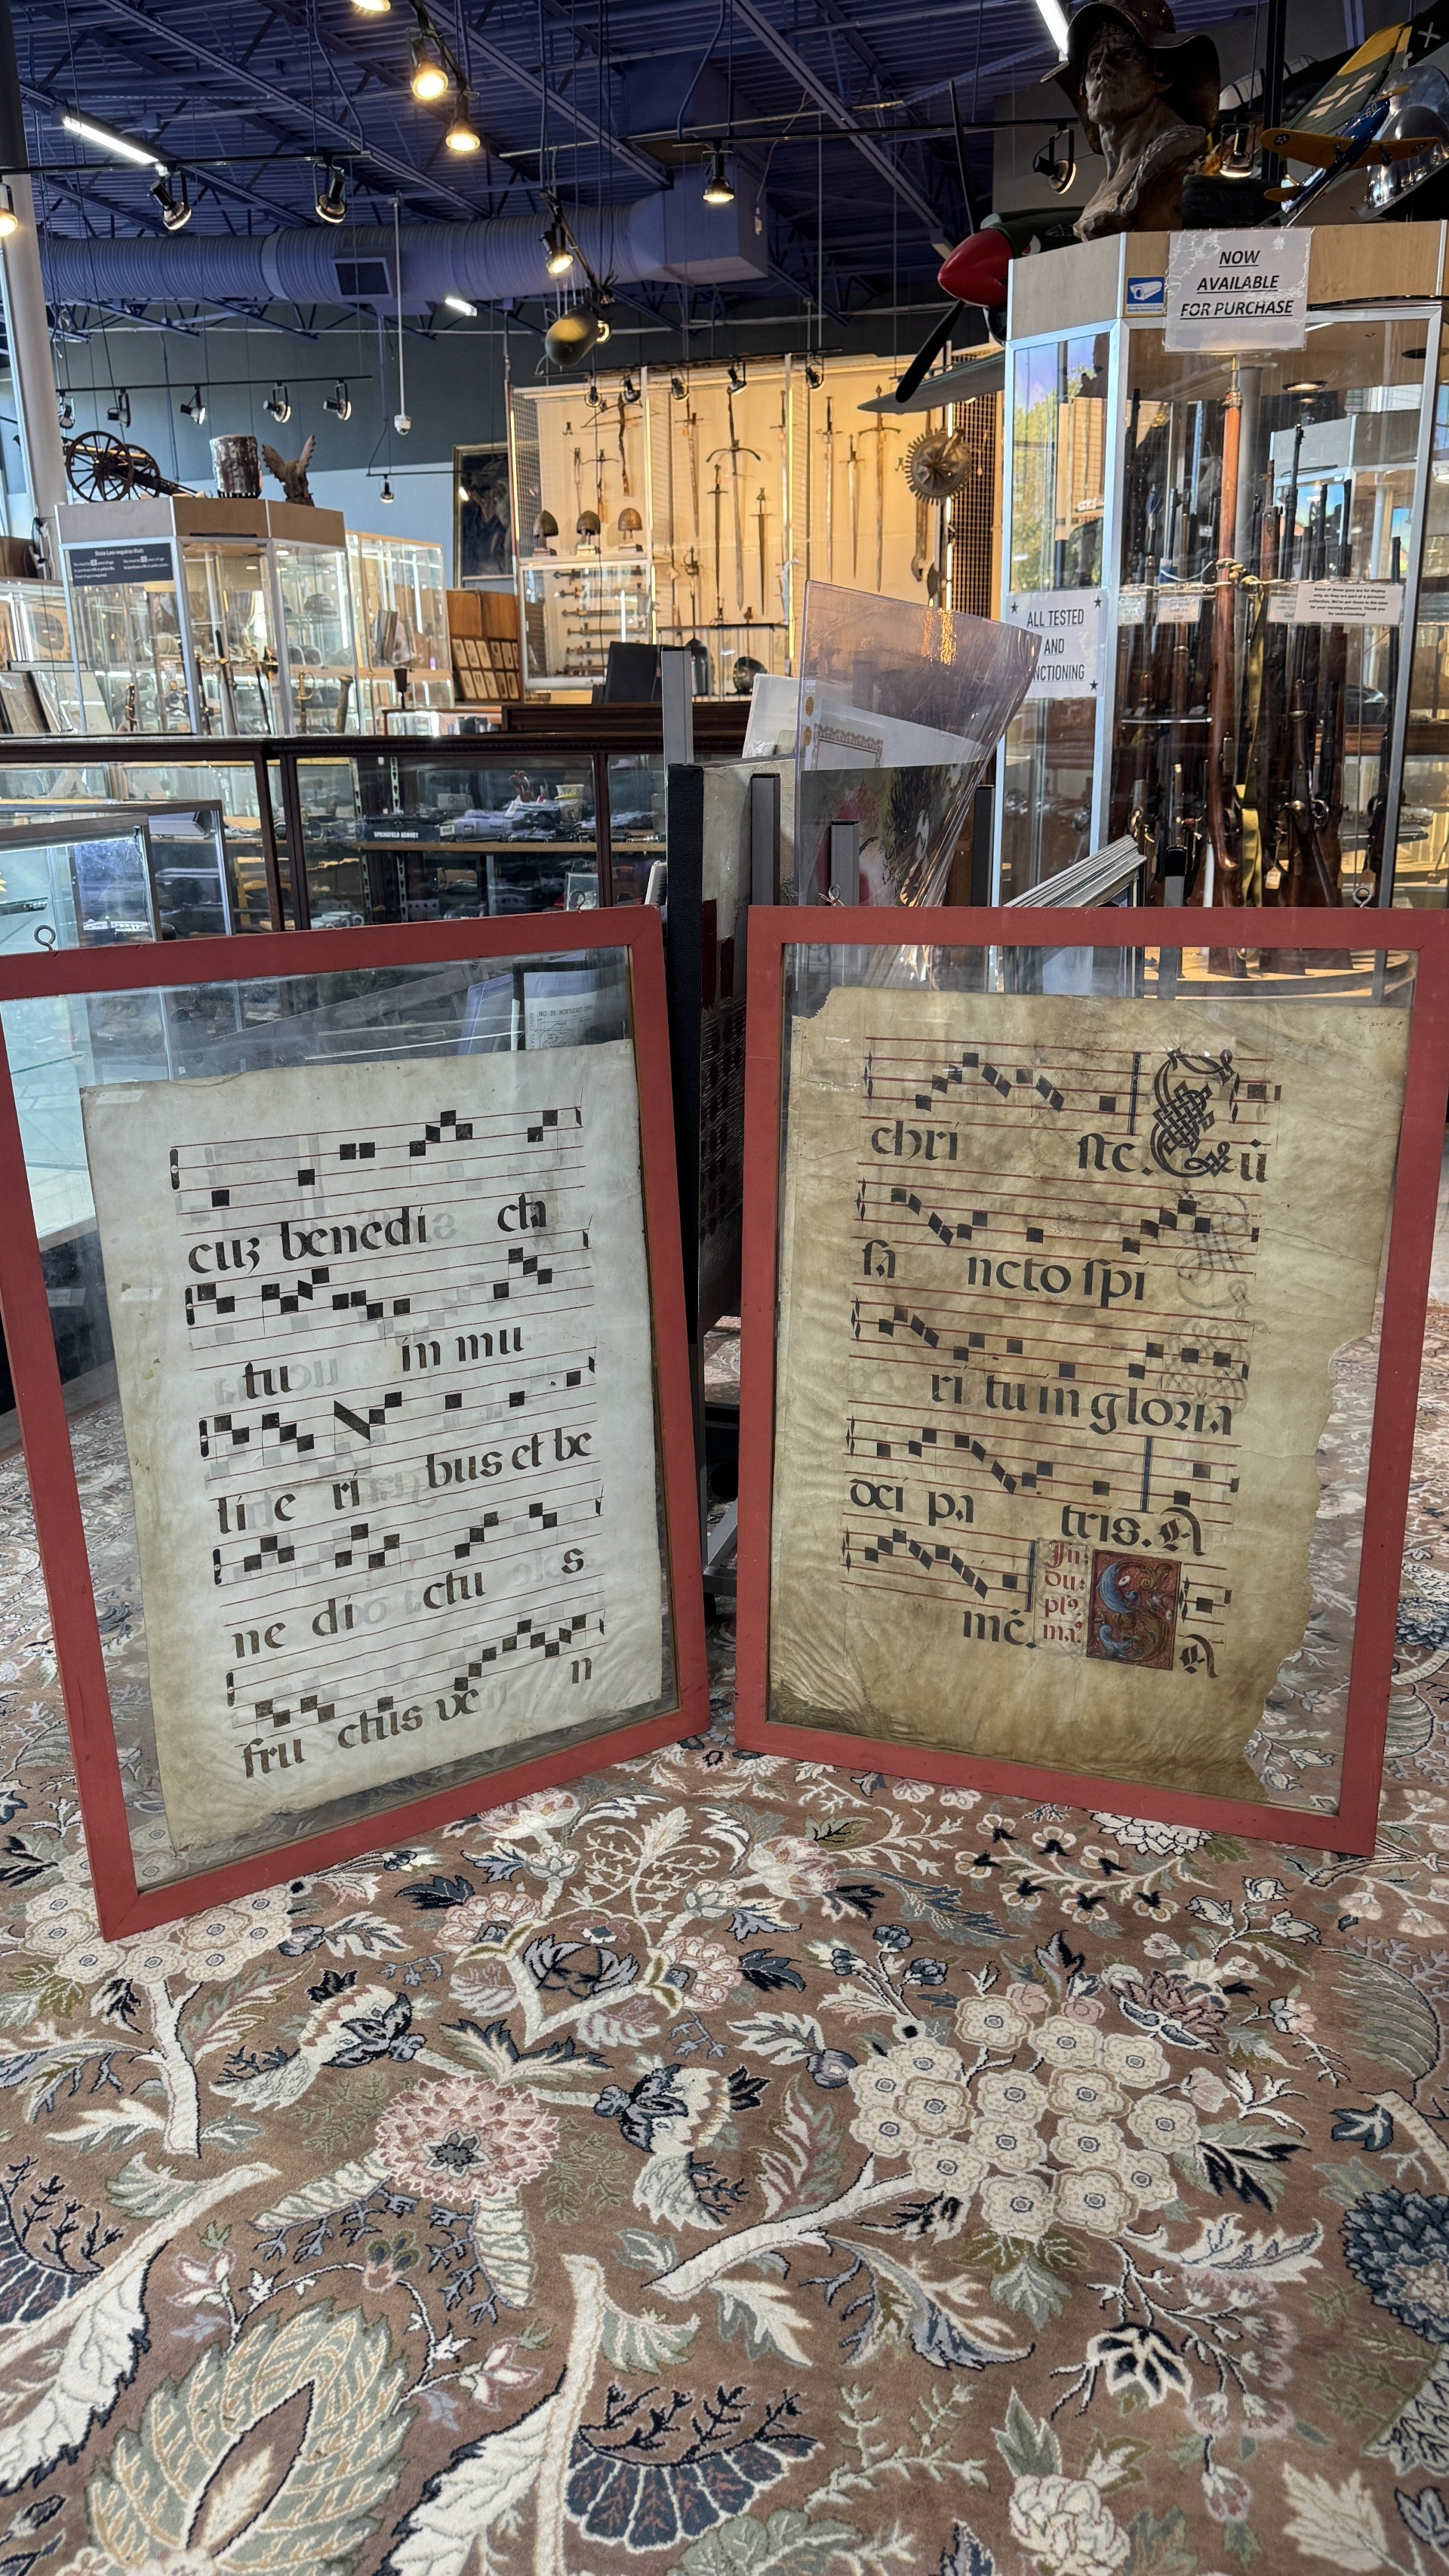 NOW
AVAILABLE
FOR PURCHASE
State Law requires that:
ALL TESTED
AND
NCTIONING
SPRINGFIELD ARMORY
cuʒ benedi cta
tu in mu
li e ri bus et be
ne di ctu s
fru ctus ve n
chri ste. Cū
sa ncto spi
ri tu in gloria
dei pa tris. A
mē. In
du
pl⁹
ma⁹
S A